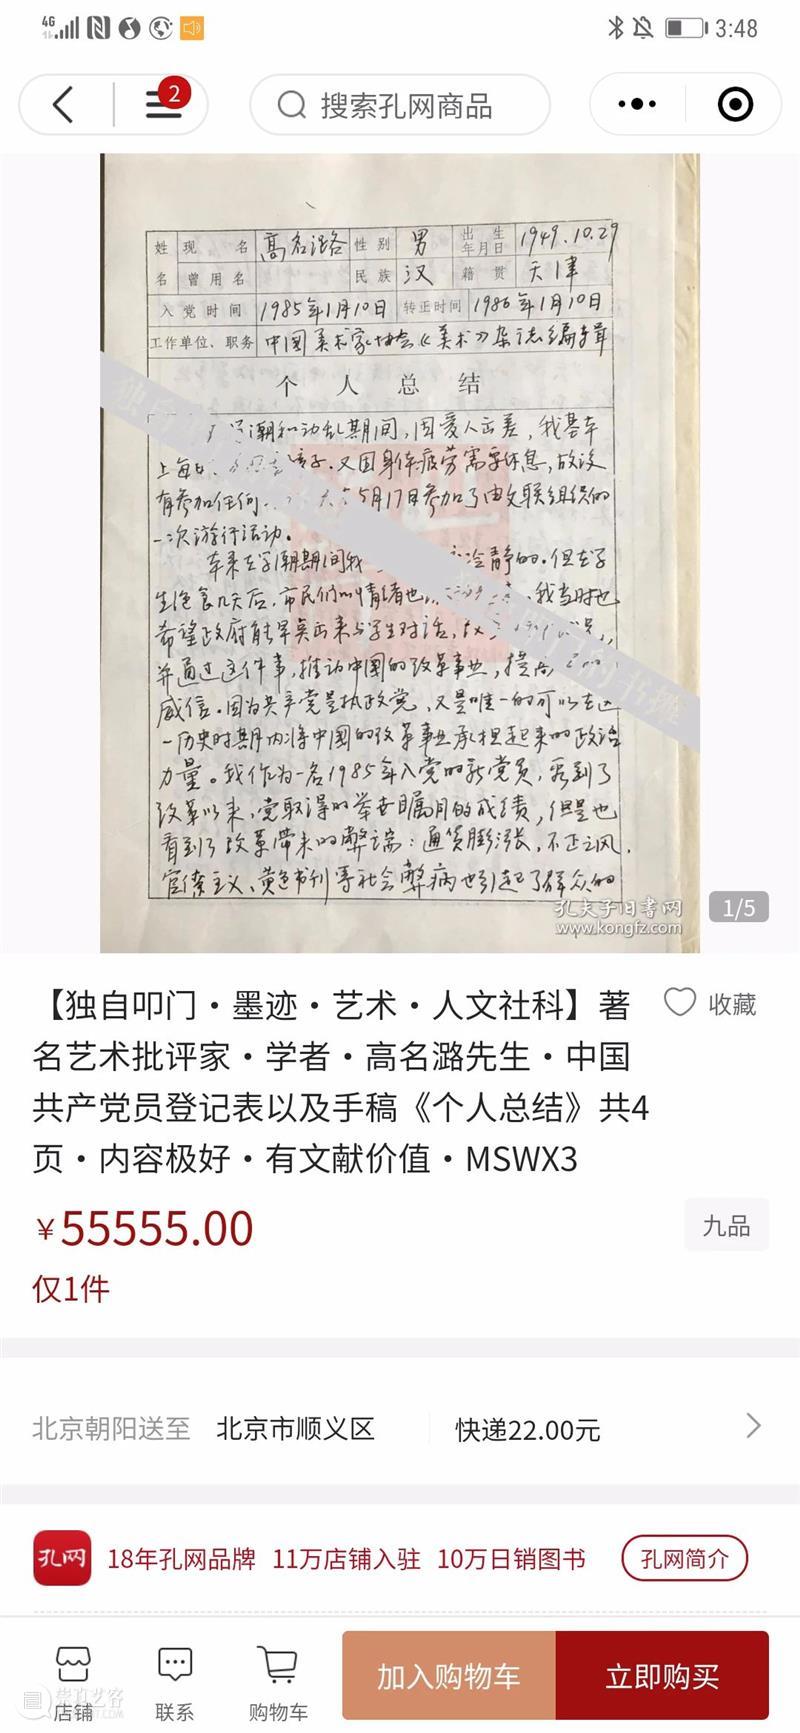 4G
3:48
2
搜索孔网商品
姓 现 名 高名潞 性别 男 出生年月日 1949.10.29
名 曾用名 民族 汉 籍贯 天津
入党时间 1985年1月10日 转正时间 1986年1月10日
工作单位、职务 中国美术家协会《美术》杂志编辑
个人总结
潮和动乱期间,因爱人出差,我基本
上每日 孩子.又因身体疲劳需要休息,故没
有参加任何 5月17日参加了由文联组织的
一次游行活动。
在学潮期间我 冷静的.但在学
生绝食几天后,市民们的情绪也 我当时也
希望政府能早点出来与学生对话,
并通过这件事,推动中国的改革事业,提高
威信.因为共产党是执政党,又是唯一的可以在这
一历史时期内将中国的改革事业承担起来的政治
力量。我作为一名1985年入党的新党员,看到了
改革以来,党取得的举世瞩目的成绩,但是也
看到了改革带来的弊端:通货膨涨,不正之风,
官僚主义、黄色书刊等社会弊病也引起了群众的
孔夫子旧书网
www.kongfz.com
1/5
【独自叩门·墨迹·艺术·人文社科】著
名艺术批评家·学者·高名潞先生·中国
共产党员登记表以及手稿《个人总结》共4
页·内容极好·有文献价值·MSWX3
收藏
¥55555.00
九品
仅1件
北京朝阳送至 北京市顺义区 快递22.00元
孔网 18年孔网品牌 11万店铺入驻 10万日销图书 孔网简介
店铺 联系 购物车 加入购物车 立即购买
崇真艺客